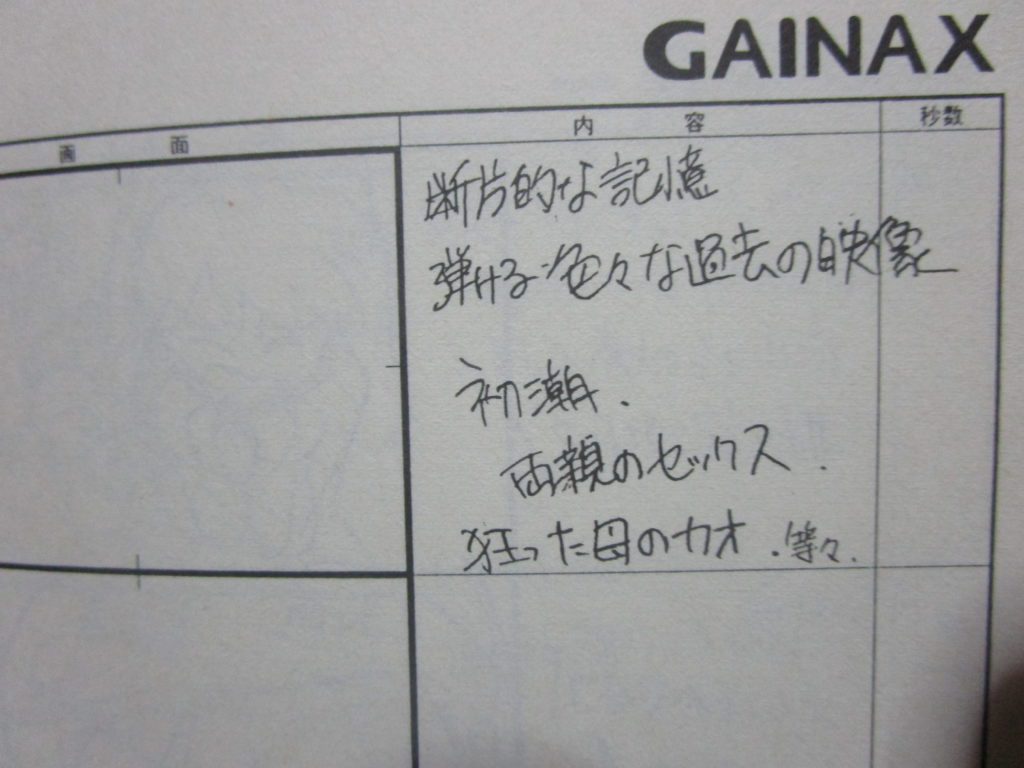 GAINAX
画面 内容 秒数
断片的な記憶
弾ける色々な過去の映像
初潮.
両親のセックス.
狂った母のカオ.等々.